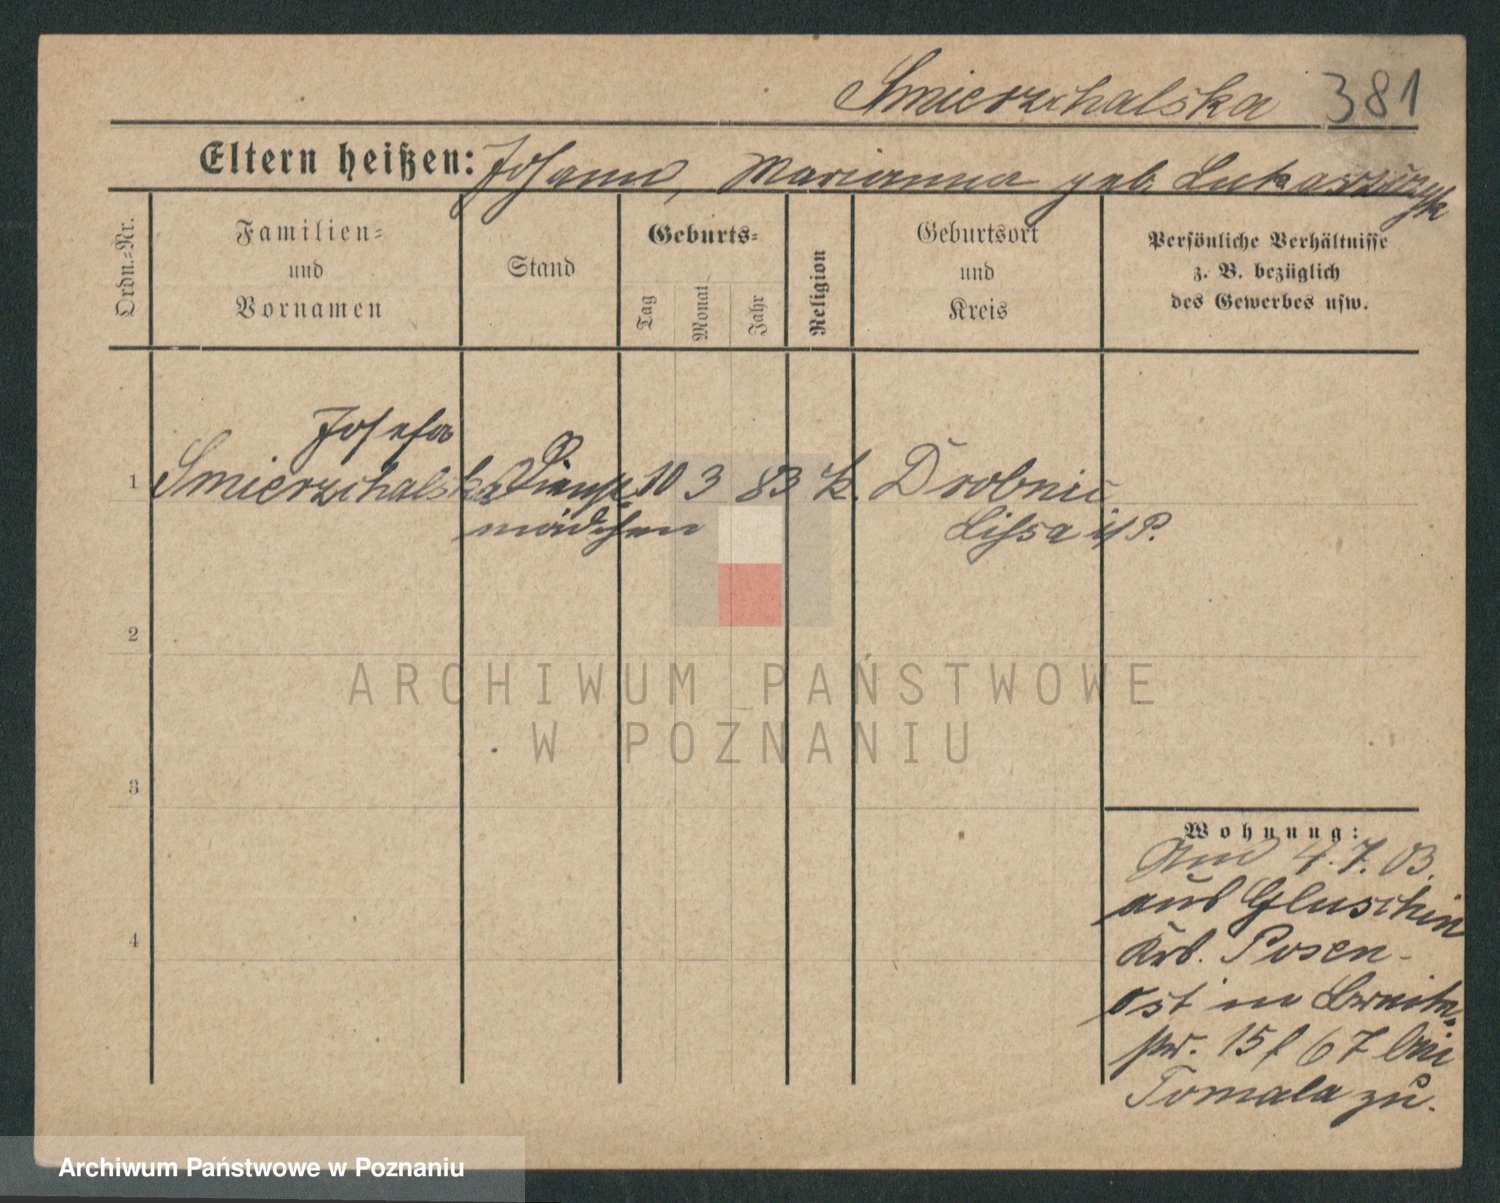 Smierzchalska 381
Eltern heißen: Johann, Marianna geb. Lukaszczyk
Ordn.-Nr.
Familien-
und
Vornamen
Stand
Geburts-
Tag
Monat
Jahr
Religion
Geburtsort
und
Kreis
Persönliche Verhältnisse
z. B. bezüglich
des Gewerbes usw.
Josefa
1 Smierzchalska Dienst- 10 3 83 K. Drobnin
mädchen Lissa i/P.
2
3
4
Wohnung:
4. 7. 03.
aus Gluschin
Krs. Posen-
ost in
15/67 bei
Tomala zu.
ARCHIWUM PAŃSTWOWE
W POZNANIU
Archiwum Państwowe w Poznaniu